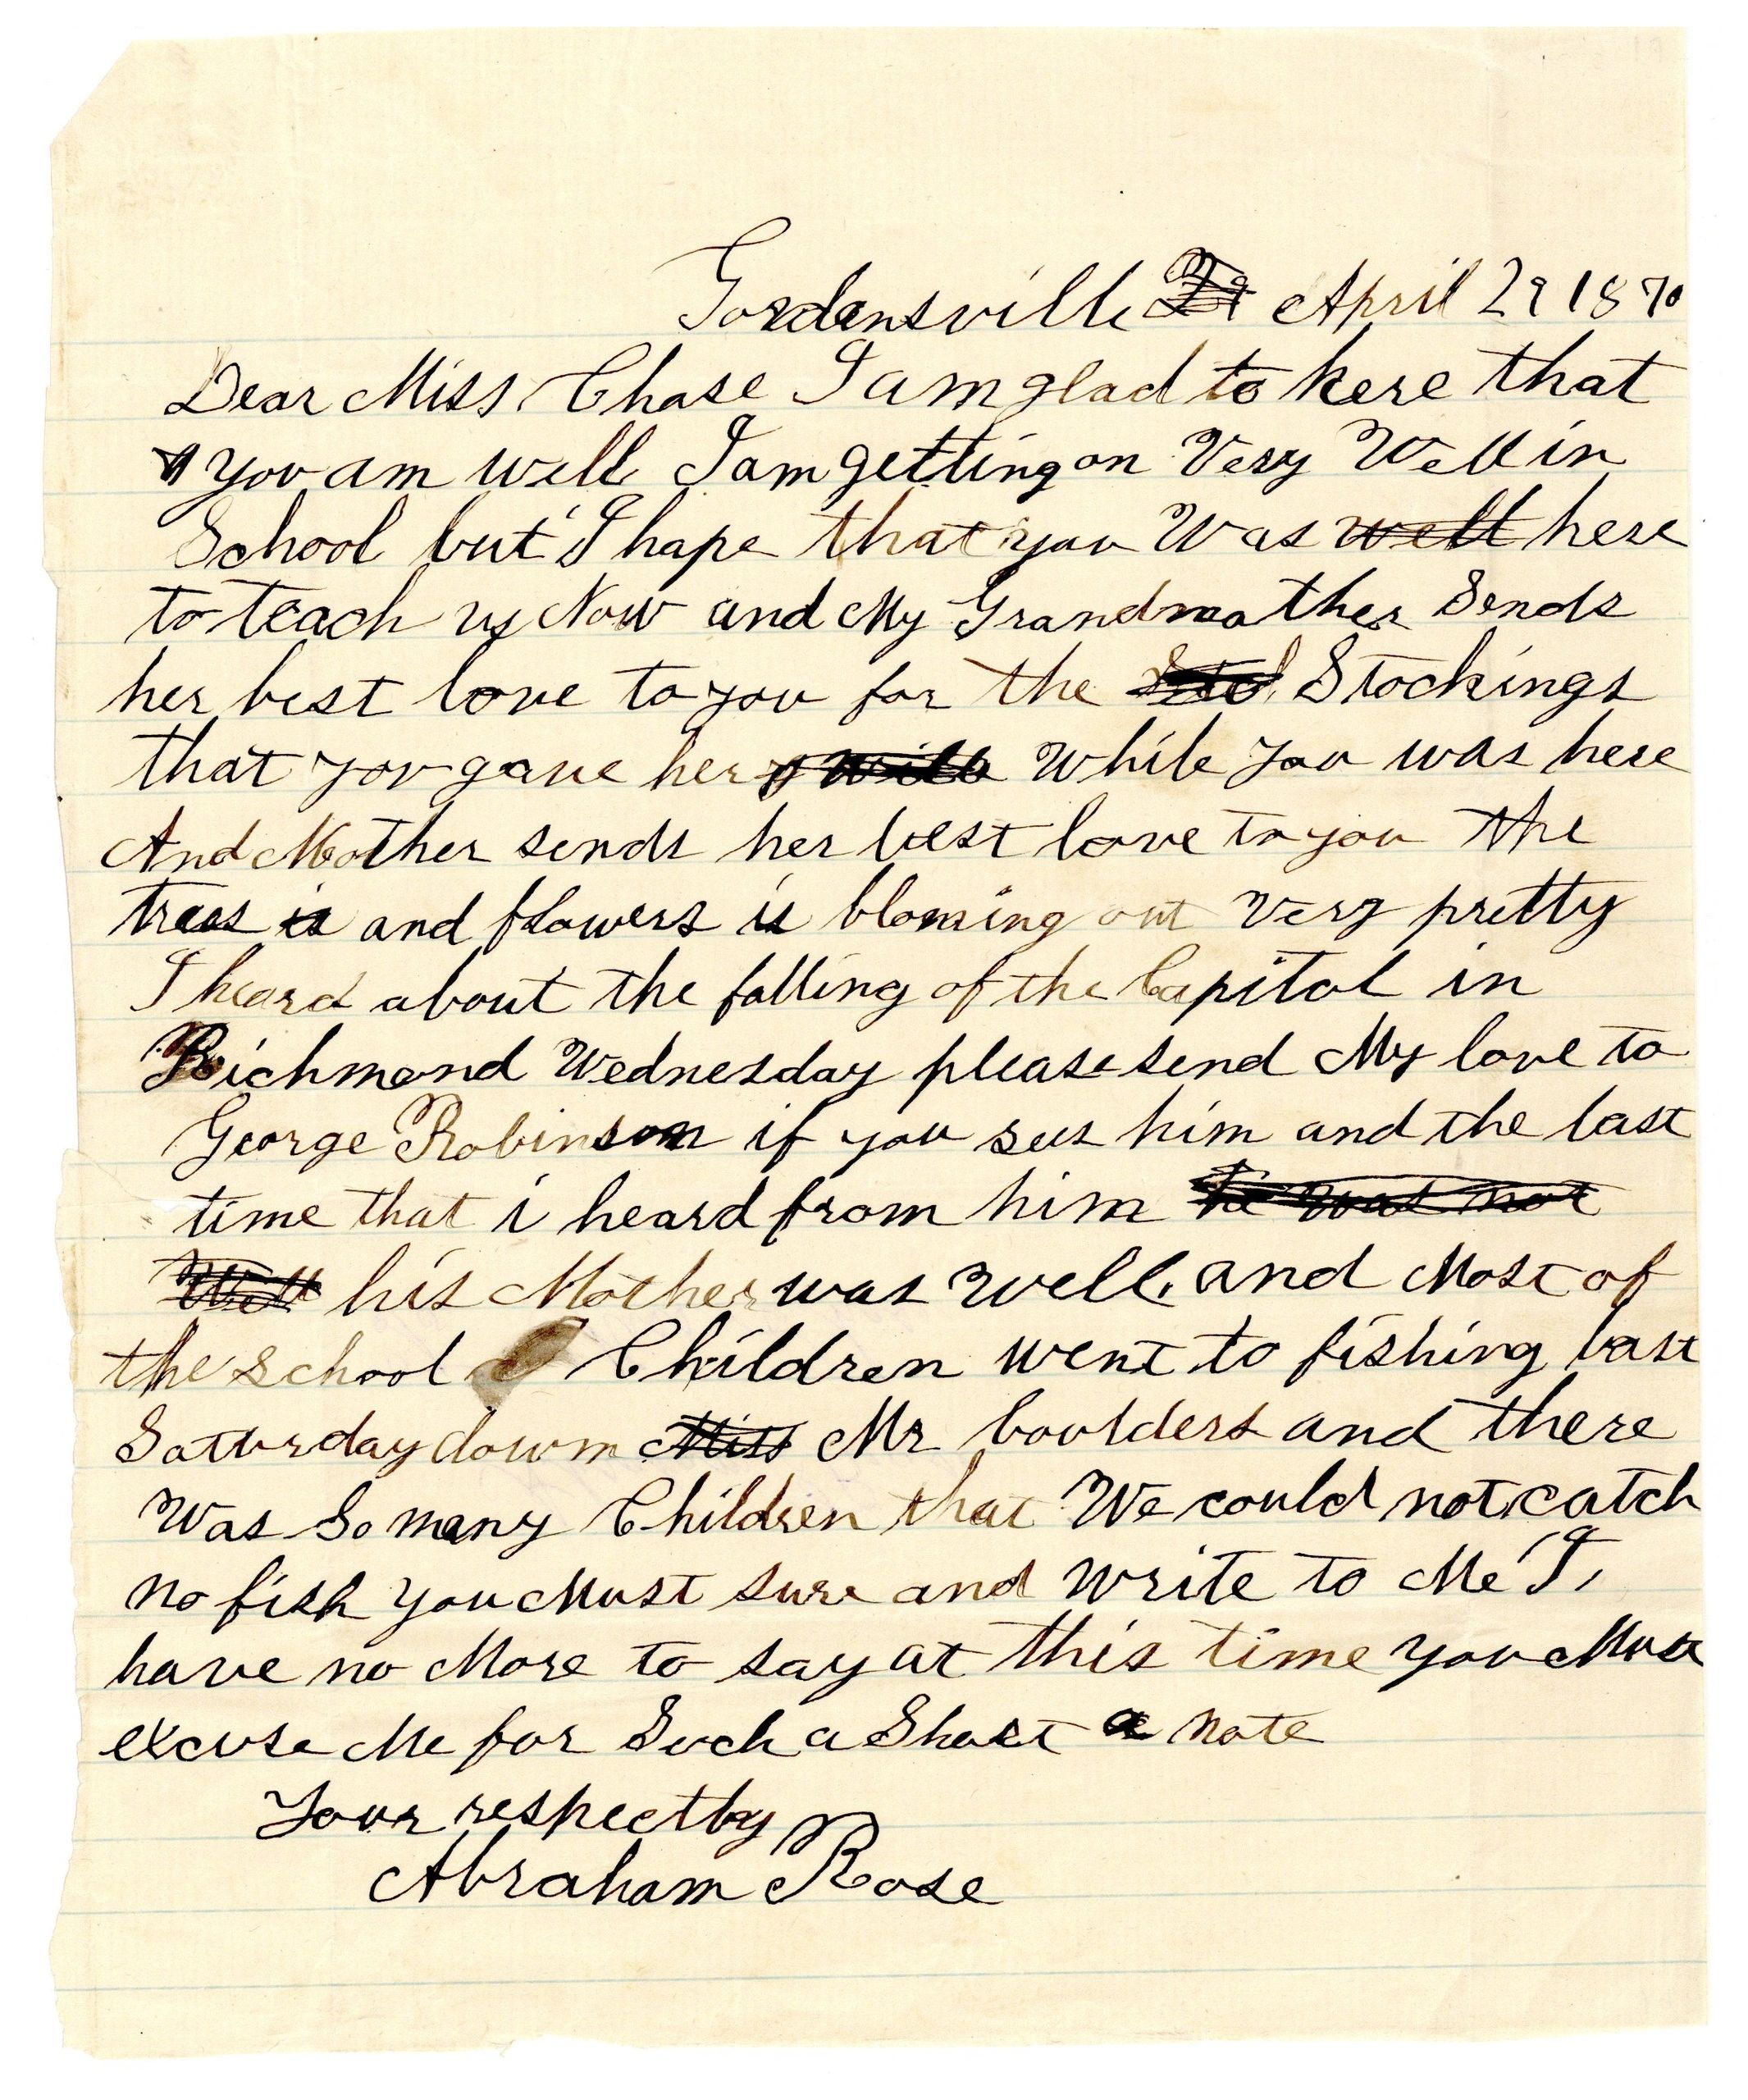 Gordansville April 29 1870
Dear Miss Chase I am glad to here that
you am well I am getting on Very Well in
School but I hape that you Was well here
to teach us Now and My Grandmother Sends
her best love to you for the Stockings
that you gave her While you was here
And Mother sends her best love to you the
trees is and flowers is bloming out Very pretty
I heard about the falling of the Capitol in
Richmond Wednesday please send My love to
George Robinson if you sees him and the last
time that i heard from him he was not
Well his Mother was well and Most of
the school Children went to fishing last
Saturday down Miss Mr boulders and there
Was So many Children that We could not catch
no fish you Must sure and write to Me I
have no More to say at this time you Must
excuse Me for Such a Short a note
Your respectby
Abraham Rose